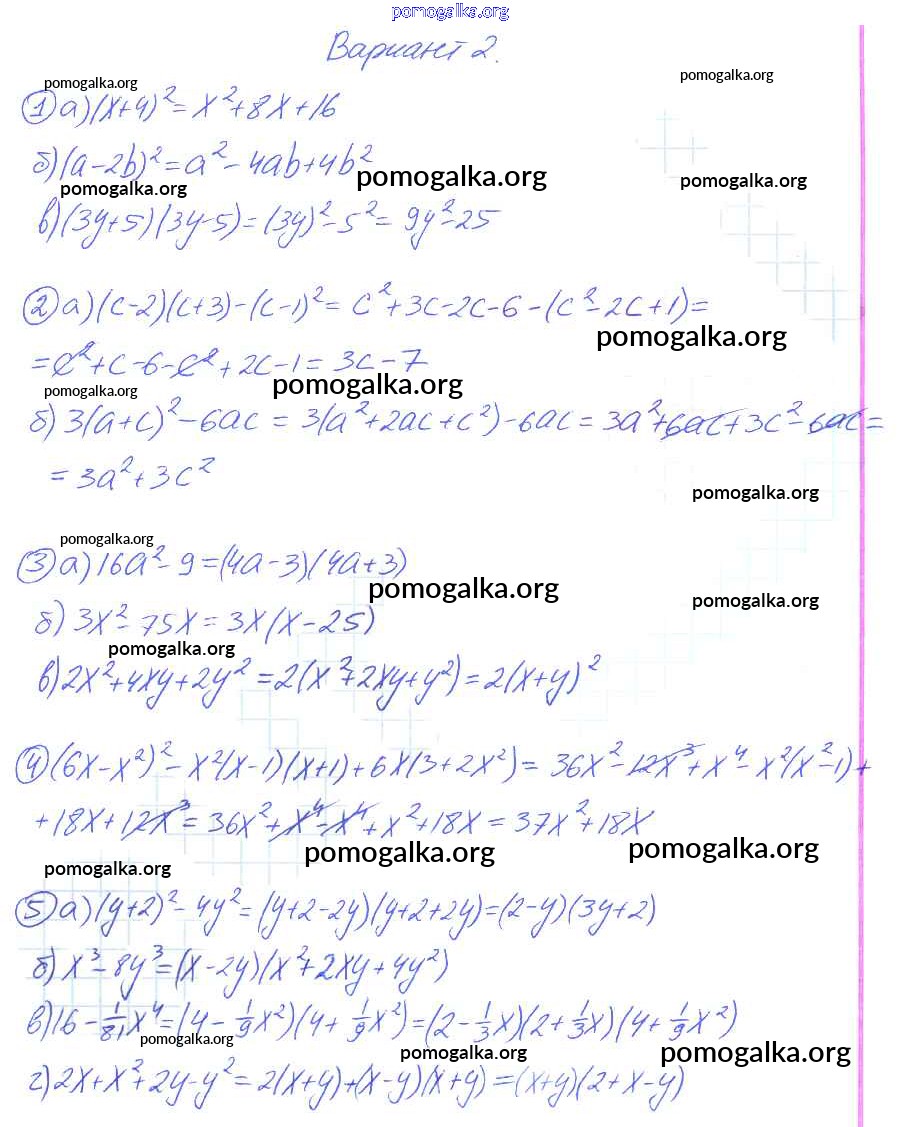 pomogalka.org
Вариант 2.
pomogalka.org pomogalka.org
① а) (x+4)² = x²+8x+16
б) (a-2b)² = a²-4ab+4b²
pomogalka.org pomogalka.org pomogalka.org
в) (3y+5)(3y-5) = (3y)²-5² = 9y²-25
② а) (c-2)(c+3)-(c-1)² = c²+3c-2c-6-(c²-2c+1)=
pomogalka.org
= c²+c-6-c²+2c-1 = 3c-7
pomogalka.org pomogalka.org
б) 3(a+c)²-6ac = 3(a²+2ac+c²)-6ac = 3a²+6ac+3c²-6ac =
= 3a²+3c²
pomogalka.org
pomogalka.org
③ а) 16a²-9 = (4a-3)(4a+3)
pomogalka.org pomogalka.org
б) 3x²-75x = 3x(x-25)
pomogalka.org
в) 2x²+4xy+2y² = 2(x²+2xy+y²) = 2(x+y)²
④ (6x-x²)²-x²(x-1)(x+1)+6x(3+2x²) = 36x²-12x³+x⁴-x²(x²-1)+
+18x+12x³ = 36x²+x⁴-x⁴+x²+18x = 37x²+18x
pomogalka.org pomogalka.org pomogalka.org
⑤ а) (y+2)²-4y² = (y+2-2y)(y+2+2y) = (2-y)(3y+2)
б) x³-8y³ = (x-2y)(x²+2xy+4y²)
в) 16-1/81x⁴ = (4-1/9x²)(4+1/9x²) = (2-1/3x)(2+1/3x)(4+1/9x²)
pomogalka.org pomogalka.org pomogalka.org
г) 2x+x²+2y-y² = 2(x+y)+(x-y)(x+y) = (x+y)(2+x-y)